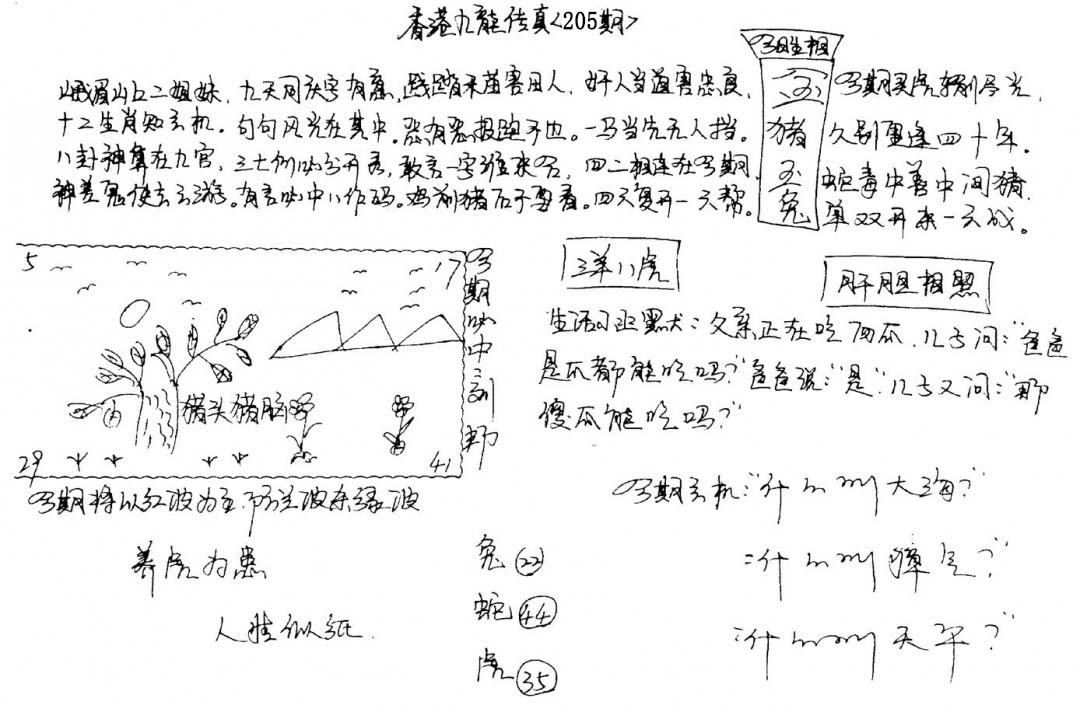 香港九龍传真<205期>
峨眉山上二姐妹，九天同庆字有意，践踏禾苗害田人，奸人当道害忠良，
十二生肖知玄机。句句风光在其中。恶有恶报跑不也。一马当先无人挡。
八卦神算在九宫，三七例必分开看，敢言一字往来台，四二相连在今期，
神差鬼使去云游。有言必中八作码。鸡前猪后子要看。四天复开一天帮。
今期生相
猪
兔
久别重逢四十年。
蛇毒中善中间猪，
单双开来一云战。
5
17
29
41
猪头猪脑
今期必中三刮
今期将以红波为主
养虎为患
人生似纸
三羊八虎
肝胆相照
生活小幽默：父亲正在吃西瓜，儿子问："爸爸
是瓜都能吃吗？"爸爸说："是"儿子又问："那
傻瓜能吃吗？"
今期玄机："什么叫大海？"
："什么叫 气？"
："什么叫天平？"
兔 22
蛇 44
虎 35